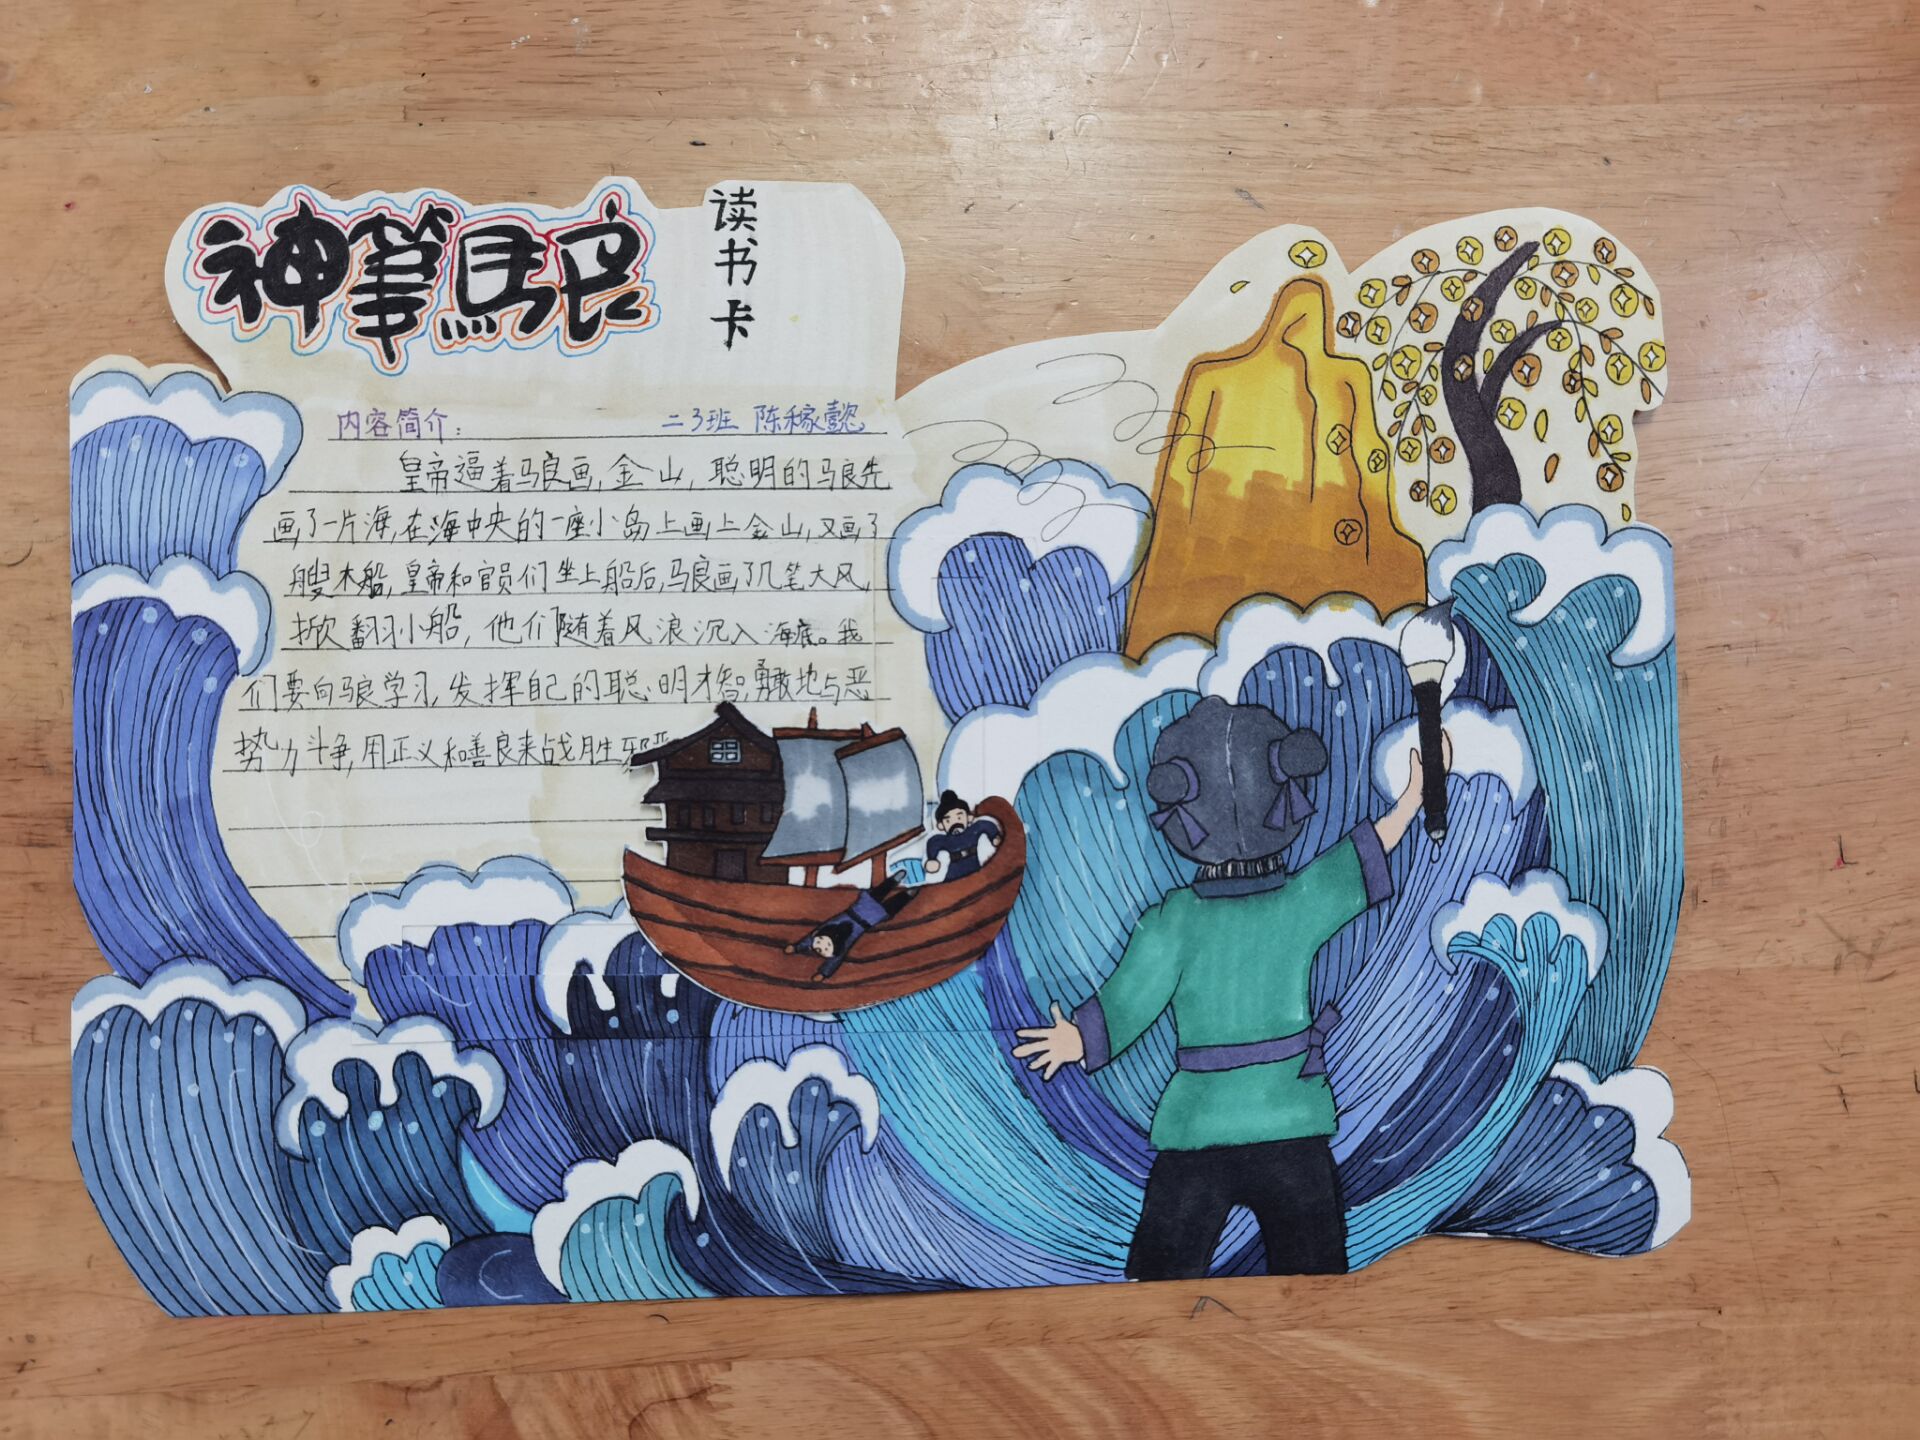 神笔马良
读书卡
内容简介: 二3班 陈稼懿
皇帝逼着马良画,金山,聪明的马良先
画了一片海,在海中央的一座小岛上画上金山,又画了
艘木船,皇帝和官员们坐上船后,马良画了几笔大风,
掀翻小船,他们随着风浪沉入海底。我
们要向马良学习,发挥自己的聪明才智,勇敢地与恶
势力斗争,用正义和善良来战胜邪